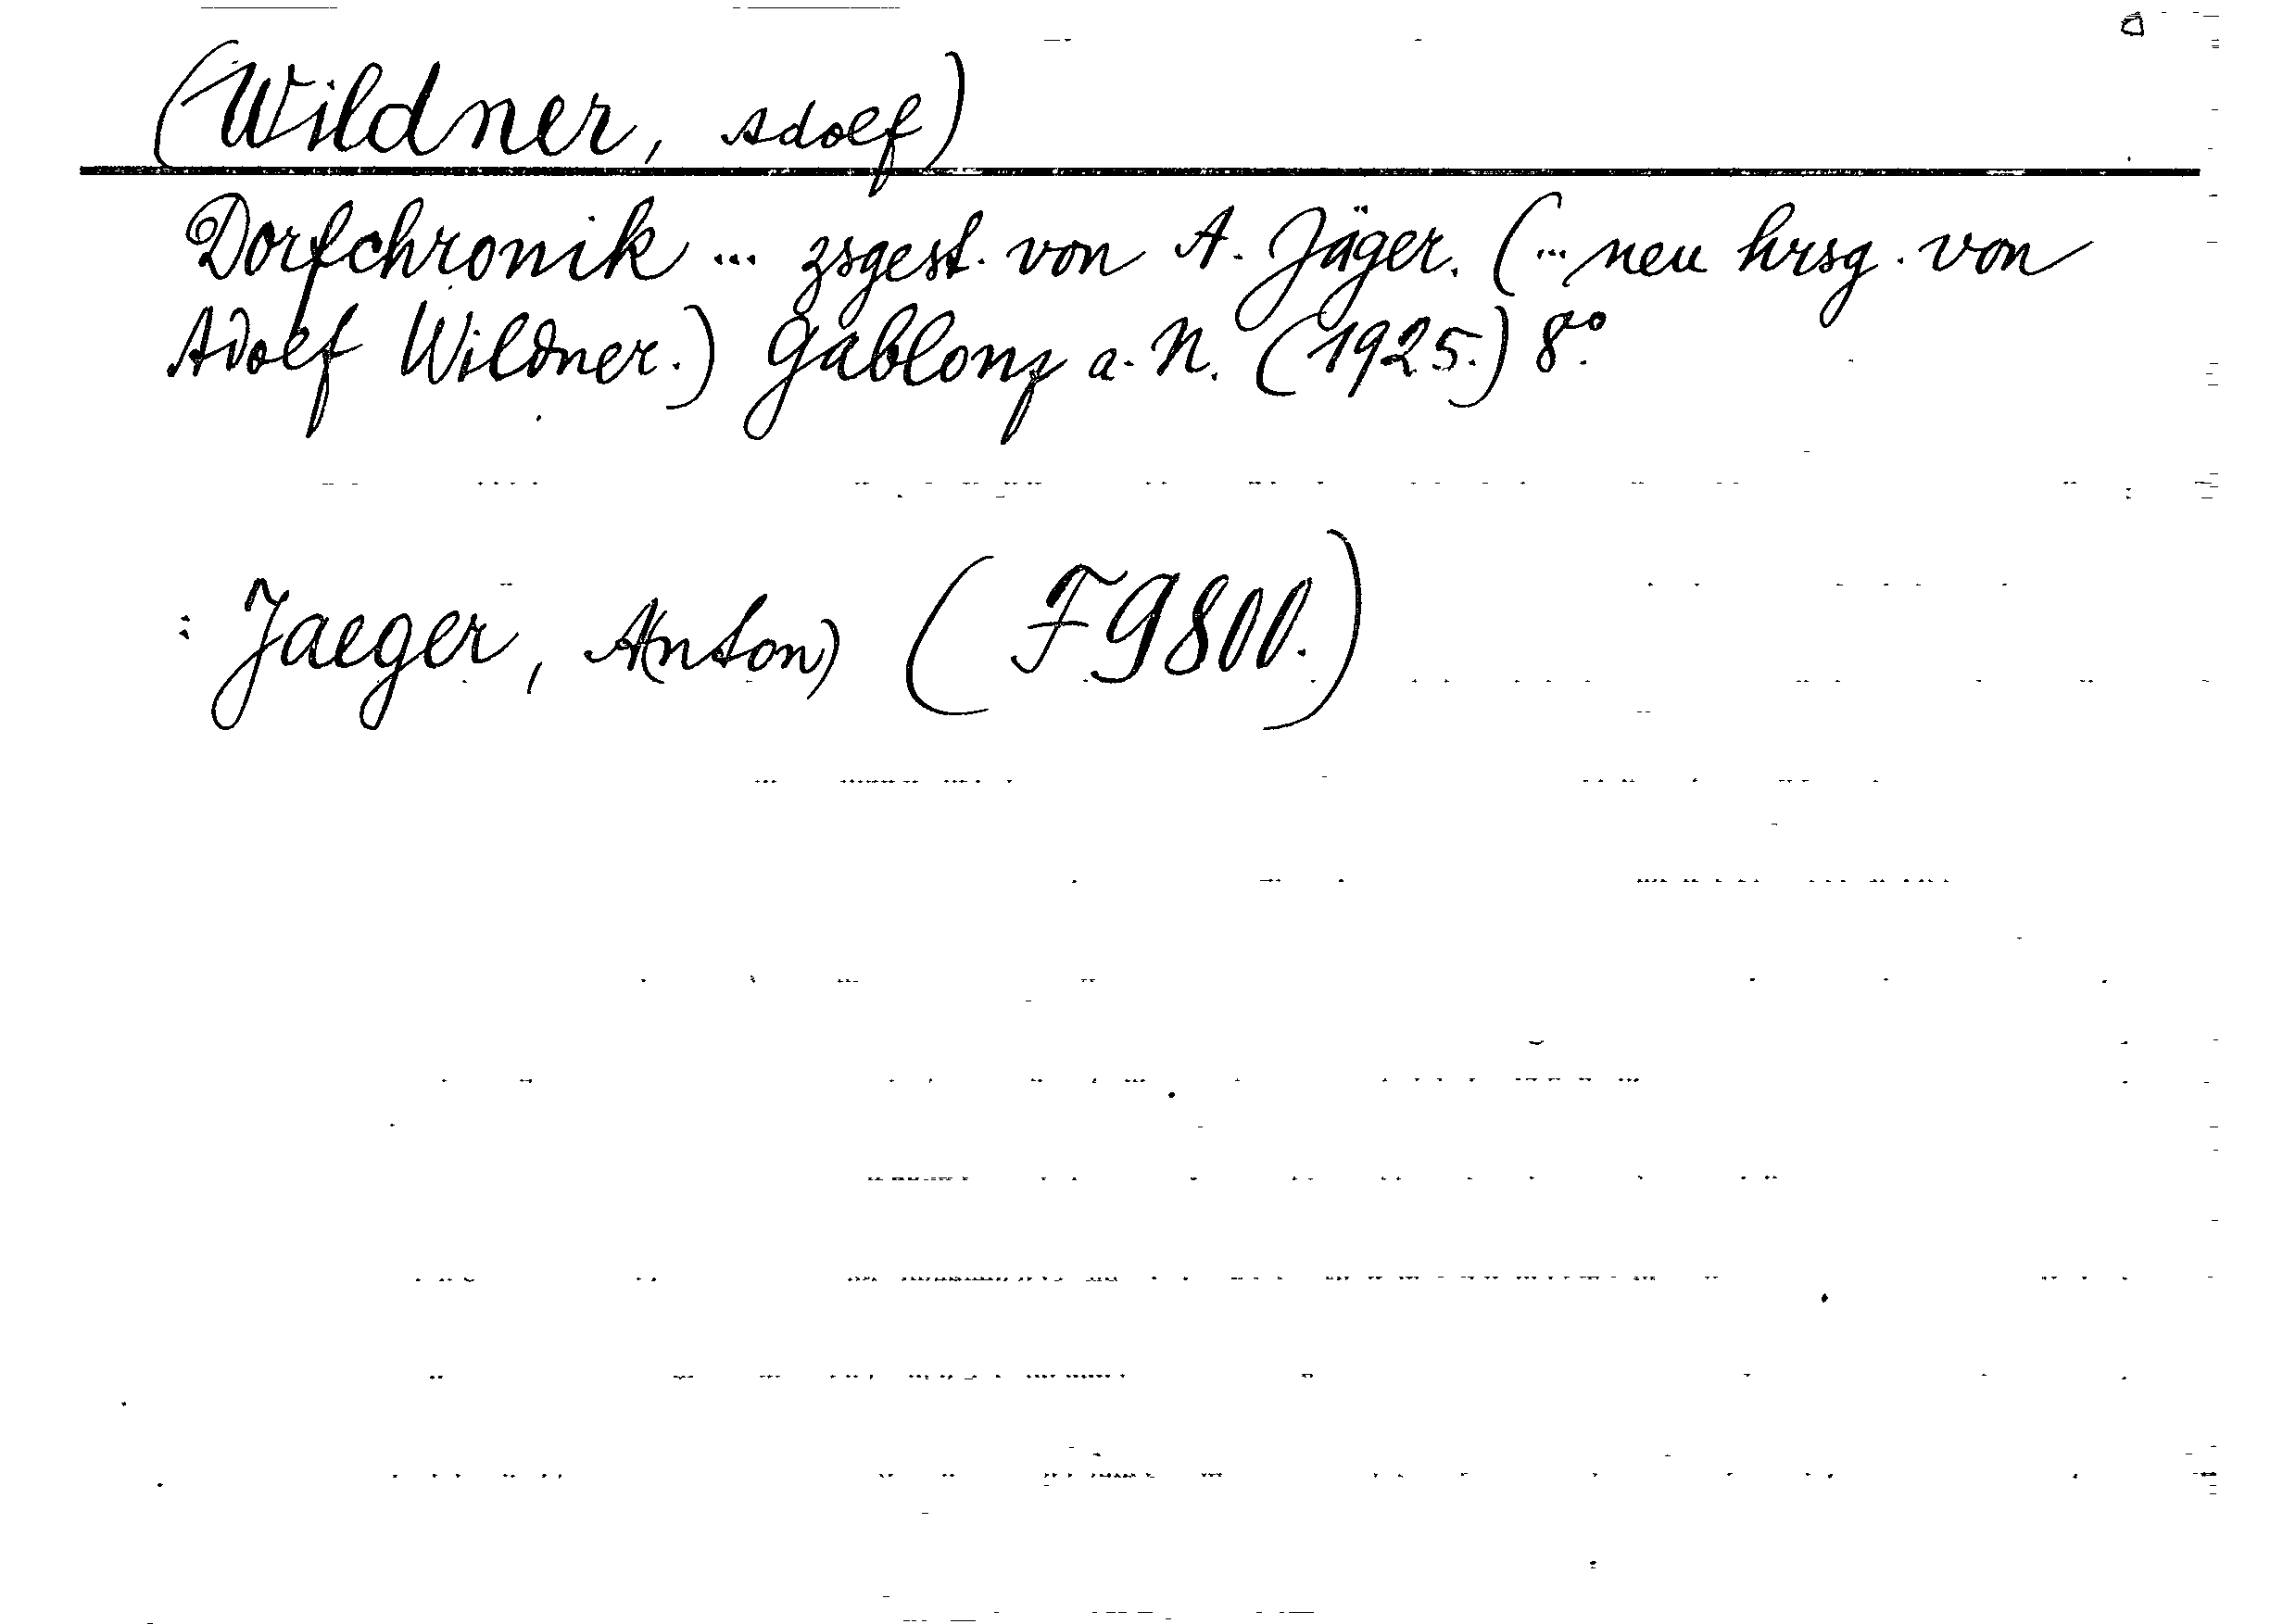 (Wildner, Adolf)
Dorfchronik ... zsgest. von A. Jäger. (... neu hrsg. von
Adolf Wildner.) Gablonz a. N. (1925.) 8°.
: Jaeger, A(nton) (F9800.)